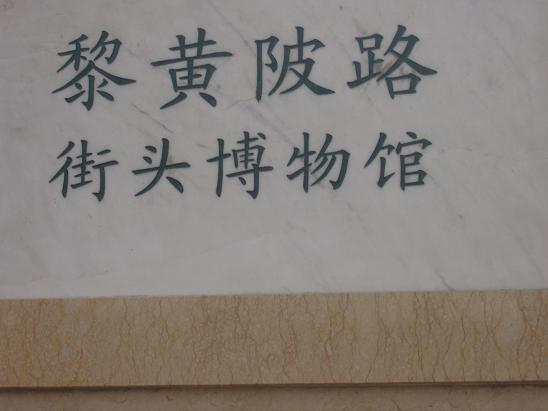 黎黄陂路
街头博物馆